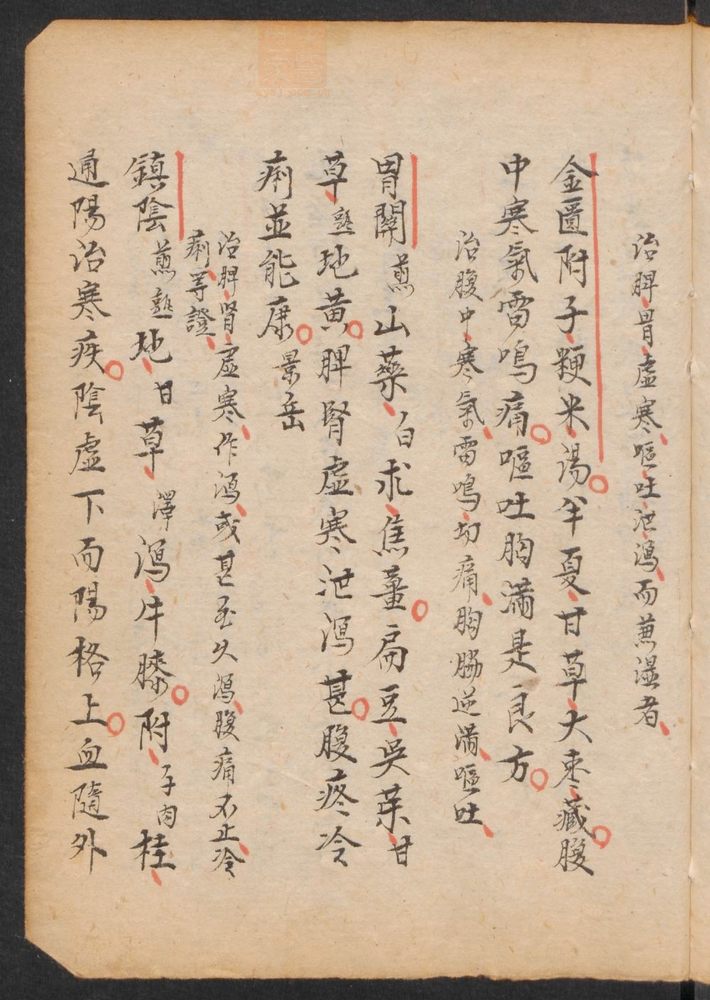 治脾胃虛寒嘔吐泄瀉而兼濕者
金匱附子粳米湯半夏甘草大枣藏腹
中寒氣雷鳴痛嘔吐胸滿是良方
治腹中寒氣雷鳴切痛胸脇逆滿嘔吐
胃關煎山藥白朮焦薑扁豆吳茱甘
草熟地黃脾腎虛寒泄瀉甚腹疼冷
痢並能康景岳
治脾腎虛寒作瀉或甚至久瀉腹痛不止冷
痢等證
鎮陰煎熟地甘草澤瀉牛膝附子肉桂
通陽治寒疾陰虛下而陽格上血隨外